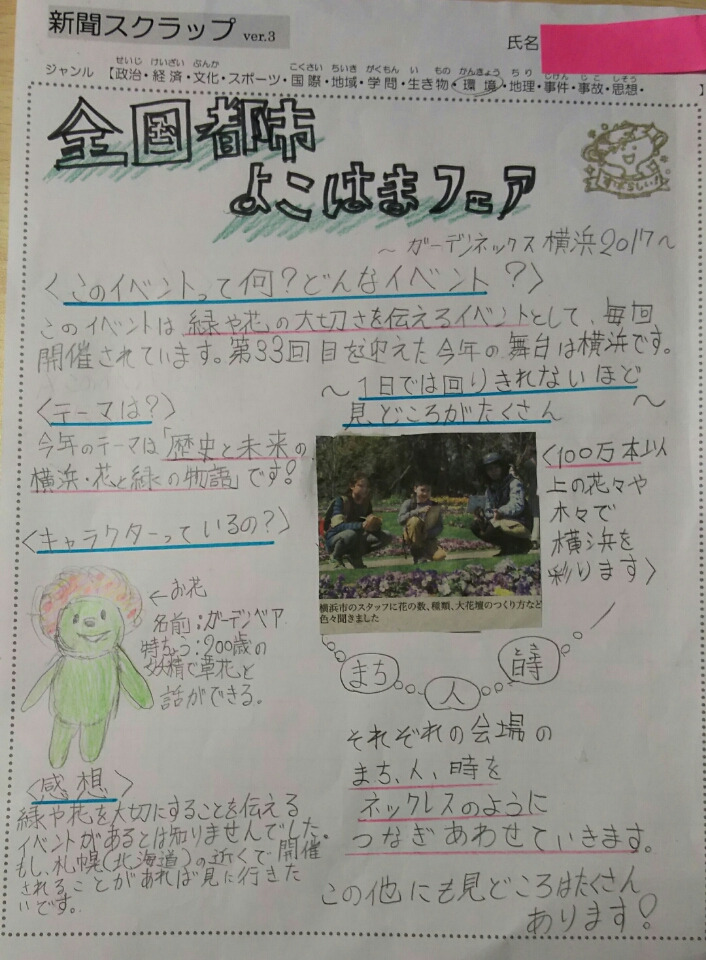 新聞スクラップ ver.3
氏名
せいじ けいざい ぶんか こくさい ちいき がくもん い もの かんきょう ちり じけん じこ しそう
ジャンル 【政治・経済・文化・スポーツ・国際・地域・学問・生き物・環境・地理・事件・事故・思想・ 】
全国都市
よこはまフェア
すばらしい!!
～ガーデンネックス横浜2017～
〈このイベントって何?どんなイベント?〉
このイベントは緑や花の大切さを伝えるイベントとして、毎回
開催されています。第33回目を迎えた今年の舞台は横浜です。
～1日では回りきれないほど
見どころがたくさん～
〈テーマは?〉
今年のテーマは「歴史と未来の
横浜・花と緑の物語」です!
〈100万本以
上の花々や
木々で
横浜を
彩ります〉
〈キャラクターっているの?〉
←お花
名前:ガーデンベア
特ちょう:200歳の
妖精で草花と
話ができる。
横浜市のスタッフに花の数、種類、大花壇のつくり方など
色々聞きました
まち 人 時
とき
それぞれの会場の
まち、人、時を
ネックレスのように
つなぎあわせていきます。
〈感想〉
緑や花を大切にすることを伝える
イベントがあるとは知りませんでした。
もし、札幌(北海道)の近くで開催
されることがあれば見に行きた
いです。
この他にも見どころはたくさん
あります!